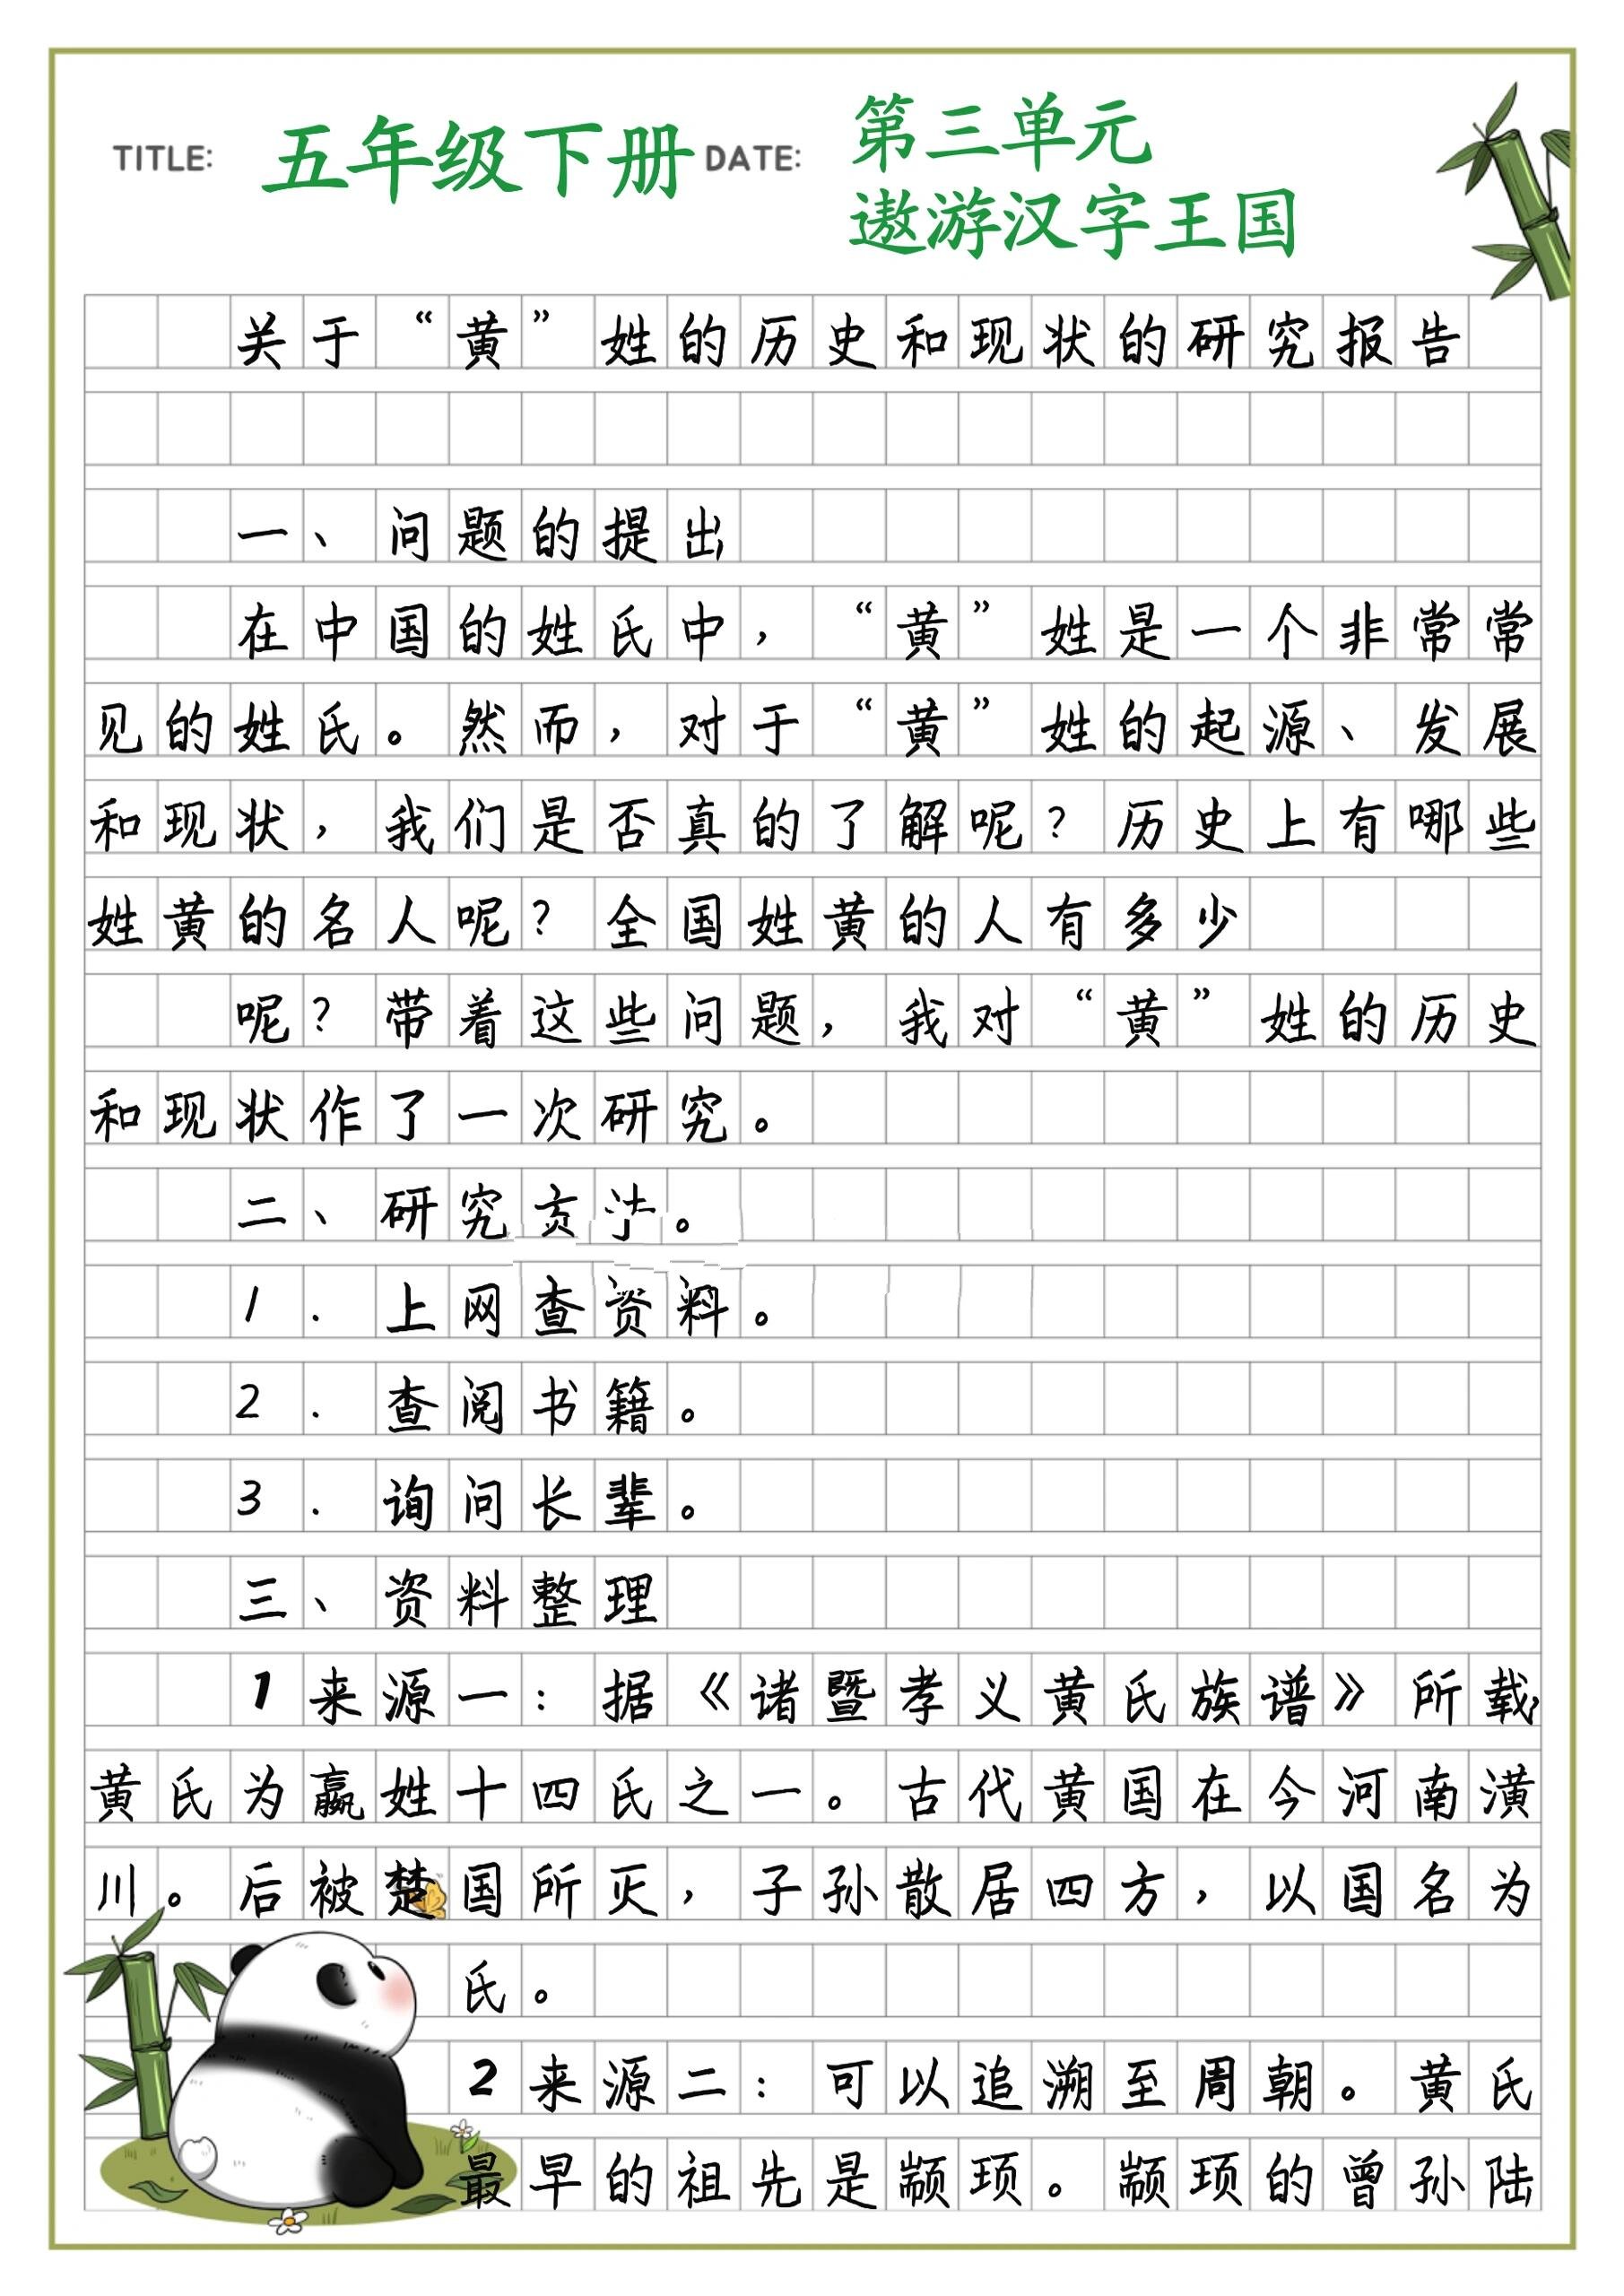 TITLE: 五年级下册 DATE: 第三单元
遨游汉字王国
关于“黄”姓的历史和现状的研究报告
一、问题的提出
在中国的姓氏中，“黄”姓是一个非常常
见的姓氏。然而，对于“黄”姓的起源、发展
和现状，我们是否真的了解呢？历史上有哪些
姓黄的名人呢？全国姓黄的人有多少
呢？带着这些问题，我对“黄”姓的历史
和现状作了一次研究。
二、研究方法。
1．上网查资料。
2．查阅书籍。
3．询问长辈。
三、资料整理
1来源一：据《诸暨孝义黄氏族谱》所载，
黄氏为嬴姓十四氏之一。古代黄国在今河南潢
川。后被楚国所灭，子孙散居四方，以国名为
氏。
2来源二：可以追溯至周朝。黄氏
最早的祖先是颛顼。颛顼的曾孙陆